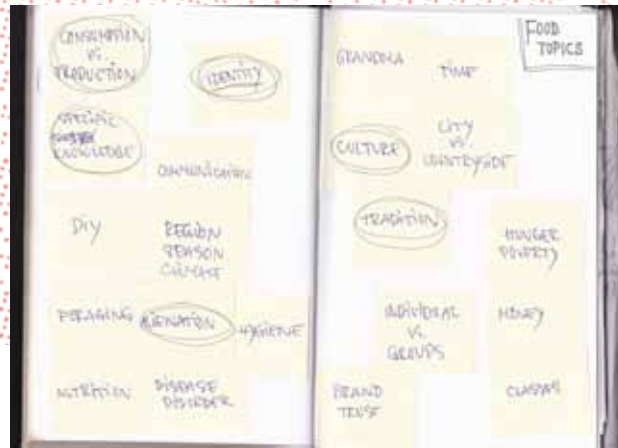 CONSUMPTION
VS.
PRODUCTION
IDENTITY
SPECIFIC
KNOWLEDGE
COMMUNICATION
DIY
REGION
SEASON
CLIMATE
FORAGING
ALIENATION
HYGIENE
NUTRITION
DISEASE
DISORDER
FOOD
TOPICS
GRANDMA
TIME
CULTURE
CITY
VS.
COUNTRYSIDE
TRADITION
HUNGER
POVERTY
INDIVIDUAL
VS.
GROUPS
MONEY
BRAND
TRUST
CLASSES